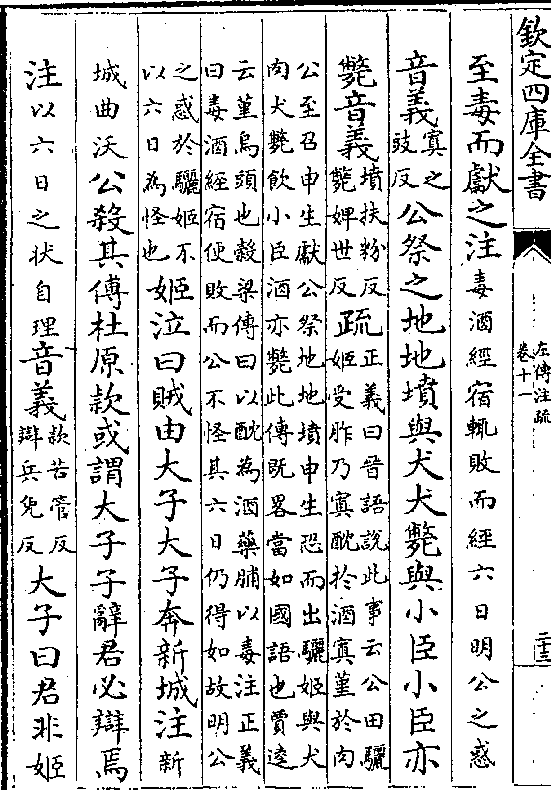 欽定四庫全書
左傳注疏
卷十一
二十三
至毒而獻之注毒酒經宿輒敗而經六日明公之惑
音義寘之豉反公祭之地地墳與犬犬斃與小臣小臣亦
斃音義墳扶粉反斃婢世反疏正義曰晉語說此事云公田驪姬受胙乃寘酖於酒寘堇於肉
公至召申生獻公祭地地墳申生恐而出驪姬與犬
肉犬斃飲小臣酒亦斃此傳既畧當如國語也賈逵
云堇烏頭也穀梁傳曰以酖為酒藥脯以毒注正義
曰毒酒經宿便敗而公不怪其六日仍得如故明公
之惑於驪姬不以六日為怪也姬泣曰賊由大子大子奔新城注新
城曲沃公殺其傅杜原款或謂大子子辭君必辯焉
注以六日之狀自理音義款苦管反辯兵免反大子曰君非姬